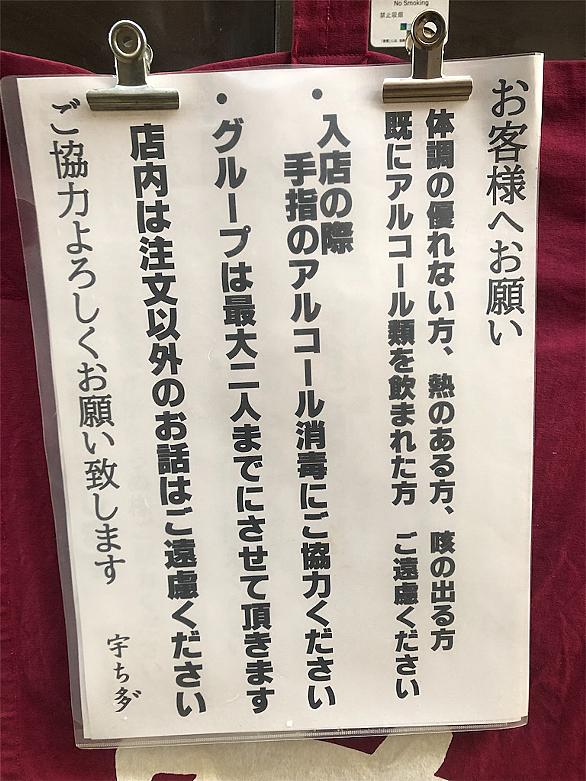 No Smoking
禁止吸烟
お客様へお願い
体調の優れない方、熱のある方、咳の出る方
既にアルコール類を飲まれた方　ご遠慮ください
・入店の際
手指のアルコール消毒にご協力ください
・グループは最大二人までにさせて頂きます
店内は注文以外のお話はご遠慮ください
ご協力よろしくお願い致します
宇ち多゛